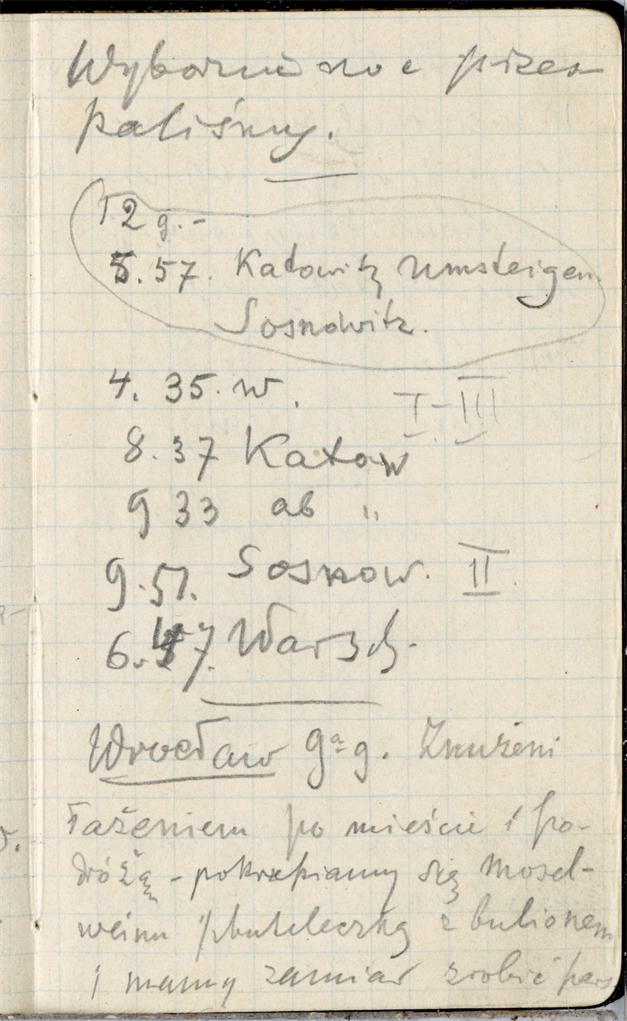 Wybornie noc przes
paliśmy.
12 g. -
5.57. Katowitz Umsteigen
Sosnowitz.
4. 35. w. I-III
8.37 Katow
9 33 ab "
9.51. Sosnow. II
6.47. Warsch.
Wrocław 9ª g. Znużeni
łażeniem po mieście i po-
dróżą - pokrapiamy się Mosel-
weinu buteleczką z bulionem
i mamy zamiar zrobić